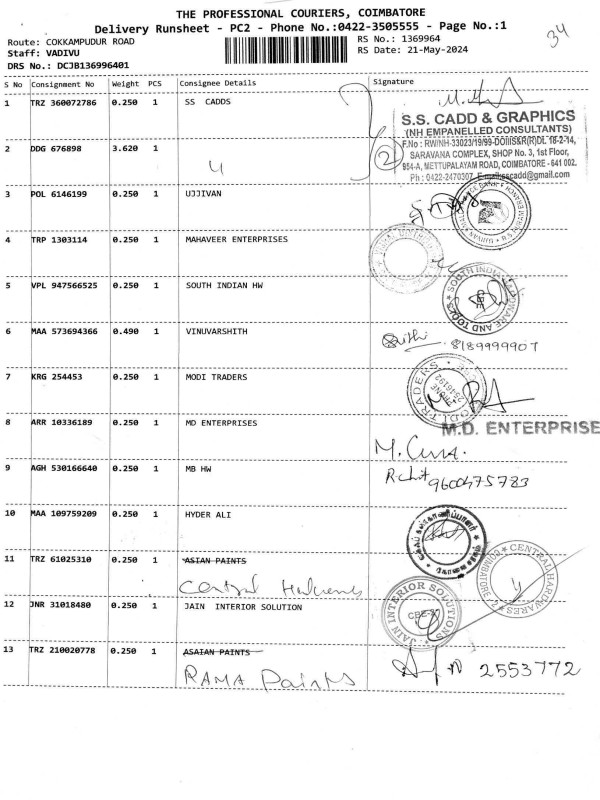 THE PROFESSIONAL COURIERS, COIMBATORE
Delivery Runsheet - PC2 - Phone No.:0422-3505555 - Page No.:1
34
Route: COKKAMPUDUR ROAD
RS No.: 1369964
Staff: VADIVU
RS Date: 21-May-2024
DRS No.: DCJB136996401
S No Consignment No Weight PCS Consignee Details Signature
1 TRZ 360072786 0.250 1 SS CADDS
S.S. CADD & GRAPHICS
(NH EMPANELLED CONSULTANTS)
SARAVANA COMPLEX, SHOP No. 3, 1st Floor,
954-A, METTUPALAYAM ROAD, COIMBATORE - 641 002.
Ph : 0422-2470307, E-mail:sscadd@gmail.com
2 DDG 676898 3.620 1
2
3 POL 6146199 0.250 1 UJJIVAN
4 TRP 1303114 0.250 1 MAHAVEER ENTERPRISES
5 VPL 947566525 0.250 1 SOUTH INDIAN HW
6 MAA 573694366 0.490 1 VINUVARSHITH
8189999907
7 KRG 254453 0.250 1 MODI TRADERS
8 ARR 10336189 0.250 1 MD ENTERPRISES
M.D. ENTERPRISE
9 AGH 530166640 0.250 1 MB HW
9600475783
10 MAA 109759209 0.250 1 HYDER ALI
11 TRZ 61025310 0.250 1 ASIAN PAINTS
Central Hardwares
CENTRAL HARDWARES
COIMBATORE-2
12 JNR 31018480 0.250 1 JAIN INTERIOR SOLUTION
JAIN INTERIOR SOLUTIONS
13 TRZ 210020778 0.250 1 ASAIAN PAINTS
RAMA Paints
2553772